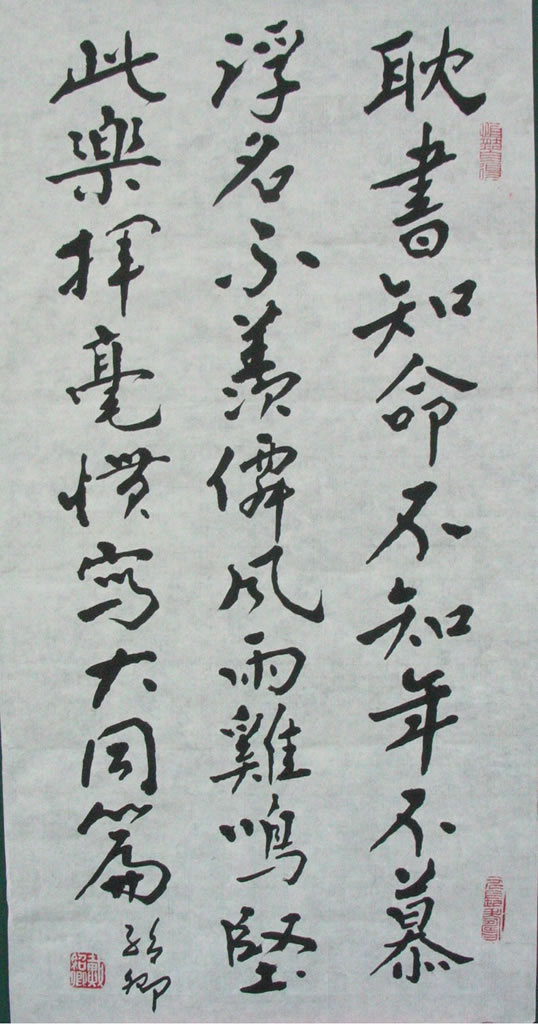 耽書知命不知年不慕
浮名不羨僊風雨雞鳴堅
此樂揮毫慣寫大同篇
紹卿
戴紹卿